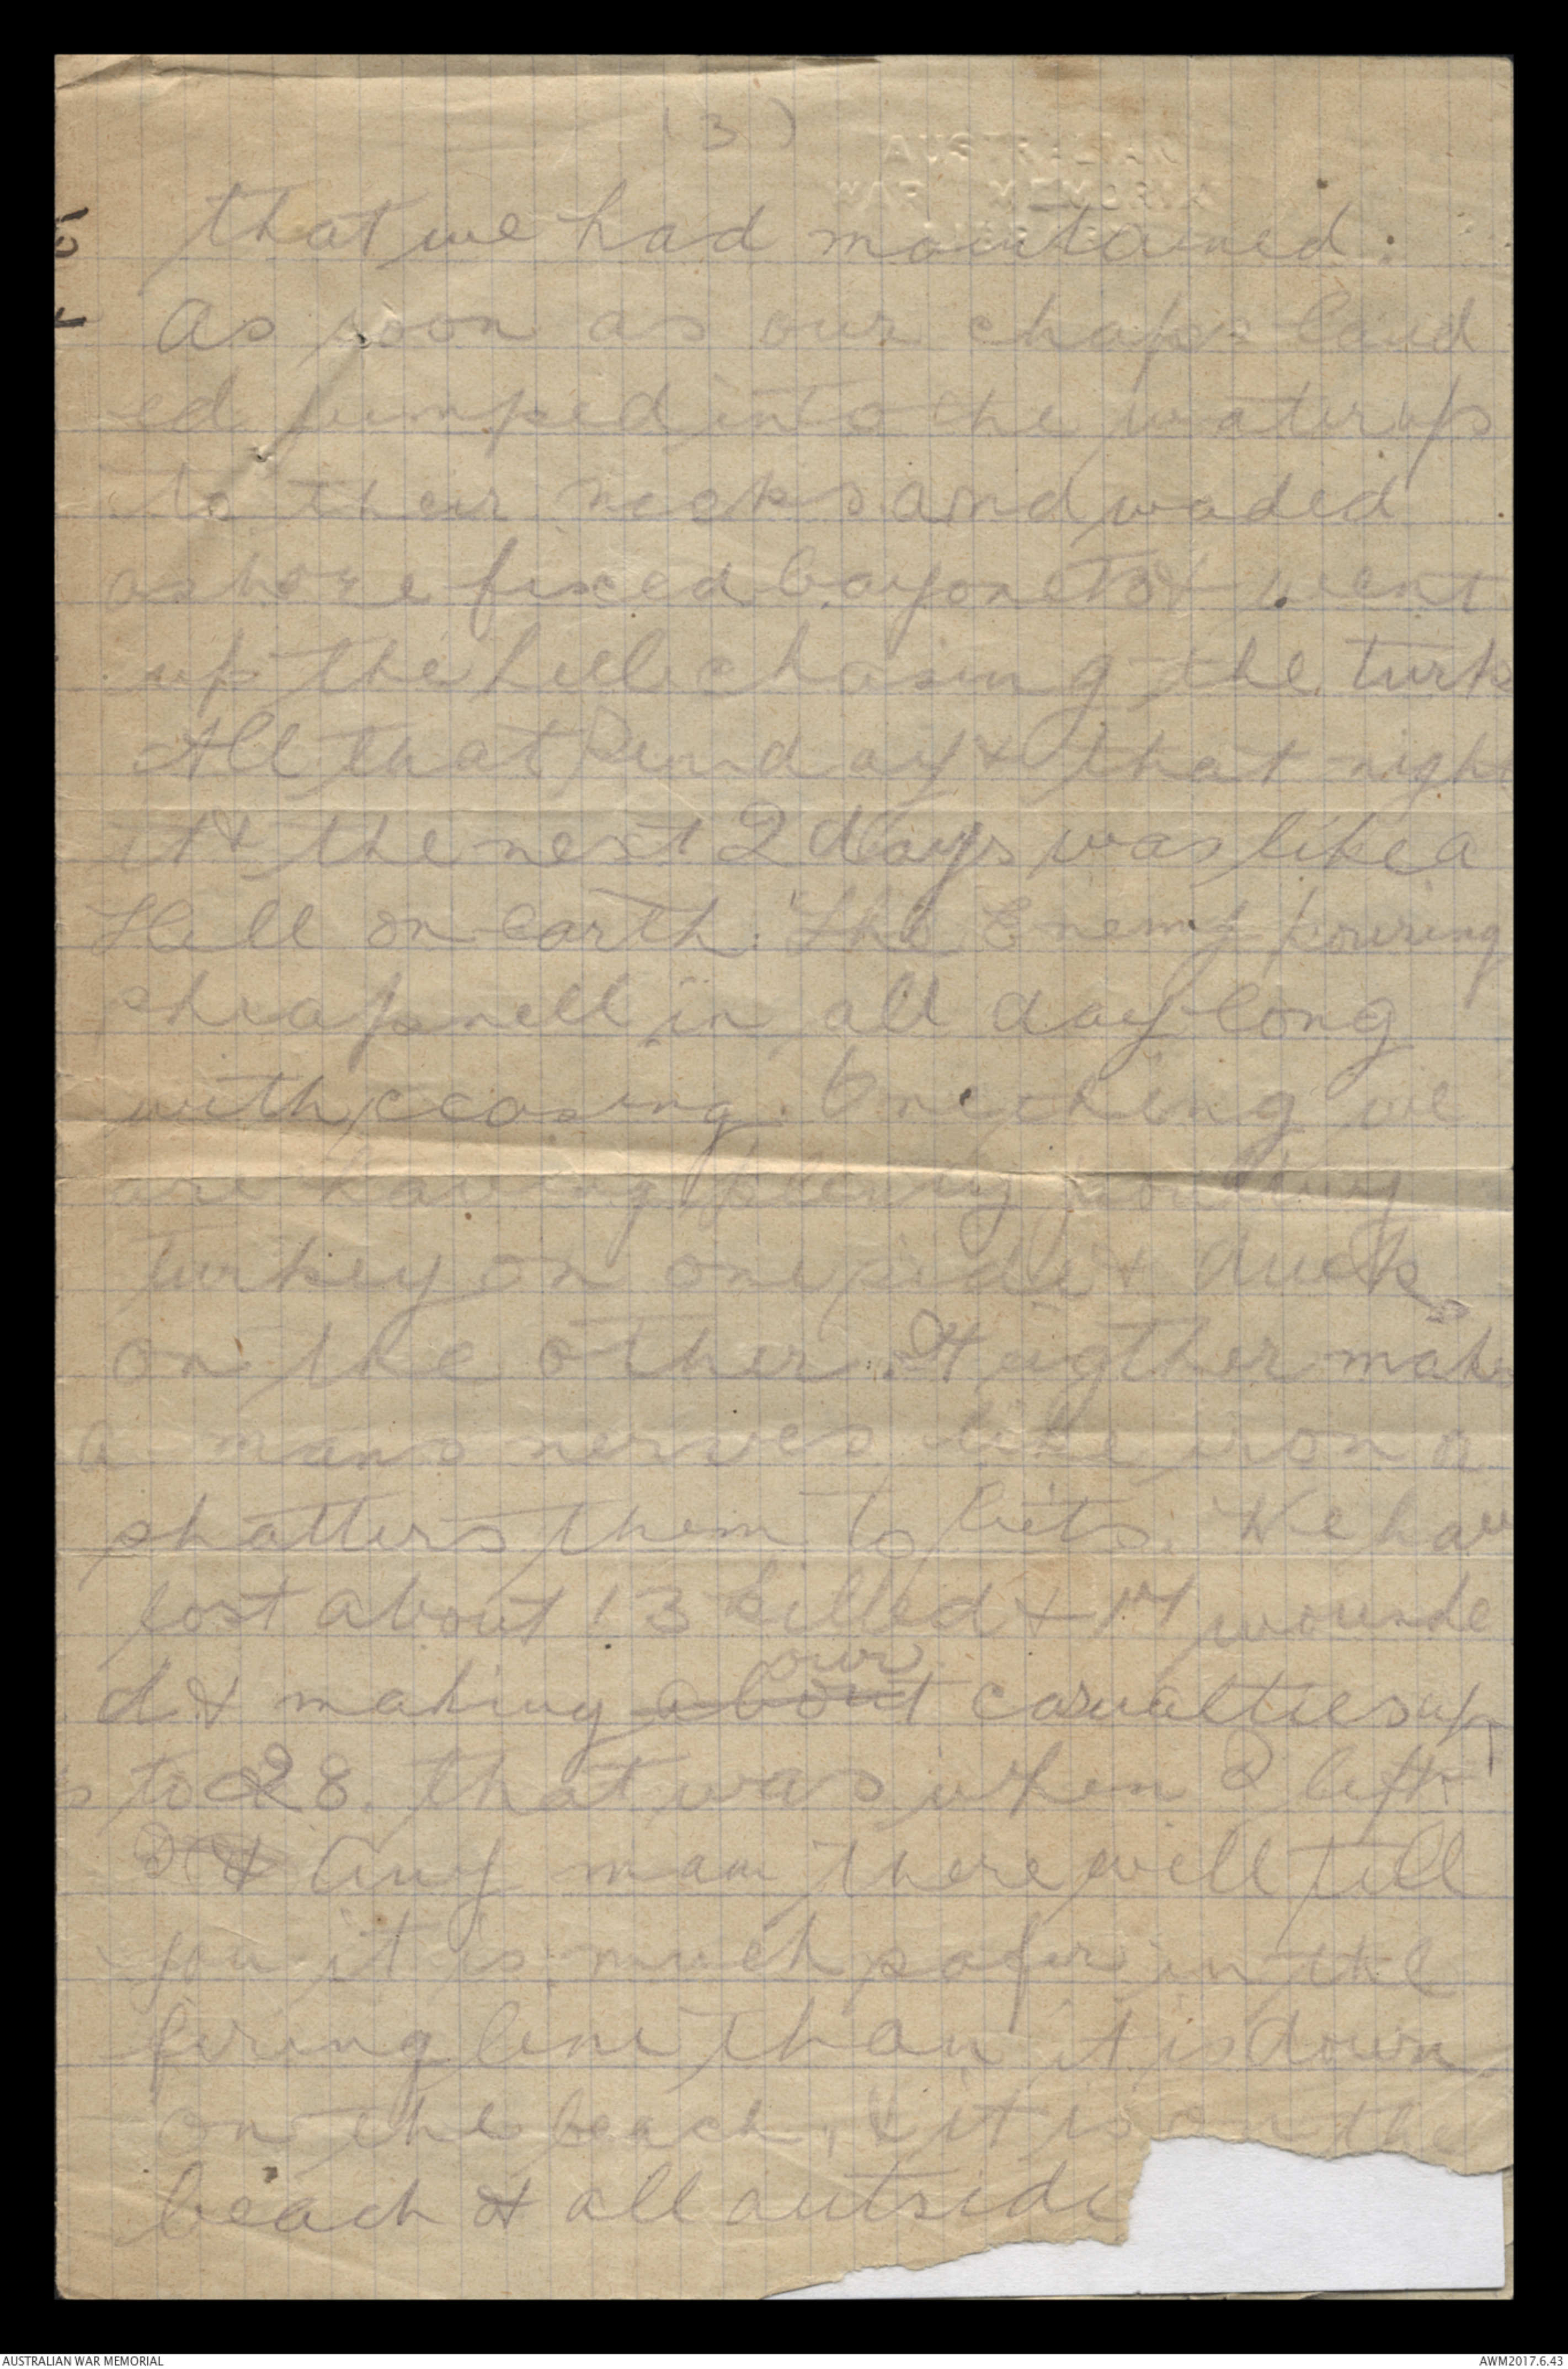 (3)
AUSTRALIAN
WAR MEMORIAL
that we had maintained.
As soon as our chaps land
ed jumped into the water up
to their necks and waded
ashore fixed bayonets & went
up the hill chasing the turks
All that Sunday & that nigh
t & the next 2 days was like a
Hell on earth. The Enemy pouring
shrapnell in all day long
with ceasing. One thing we
are having plenty
turkey on one side & ducks
on the other. It eigther make
a mans nerves like iron o
shatters them to bits. We have
lost about 13 killed & 14 wounde
d & making about our casualties up
to 28. that was when I left
Any man there will tell
you it is much safer in the
firing line than it is down
on the beach, & it is on the
beach & all outside
AUSTRALIAN WAR MEMORIAL
AWM2017.6.43